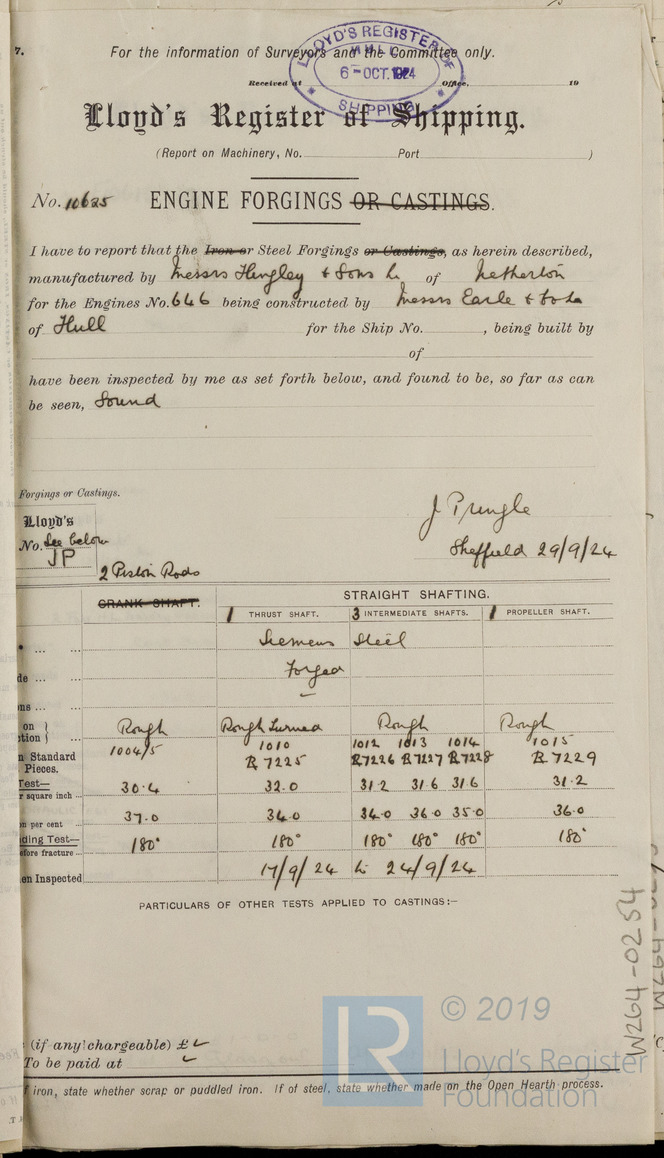 7.
For the information of Surveyors and the Committee only.
LLOYD'S REGISTER OF SHIPPING
HULL
6-OCT.1924
Received at Office, 19
Lloyd's Register of Shipping.
(Report on Machinery, No. Port )
No. 10625 ENGINE FORGINGS OR CASTINGS.
I have to report that the Iron or Steel Forgings or Castings, as herein described,
manufactured by Messrs Hingley & Sons Ld of Netherton
for the Engines No. 646 being constructed by Messrs Earle & Co Ld
of Hull for the Ship No. , being built by
of
have been inspected by me as set forth below, and found to be, so far as can
be seen, Sound
Forgings or Castings.
J Pringle
Sheffield 29/9/24
Lloyd's
No. See below
JP
2 Piston Rods
CRANK SHAFT. STRAIGHT SHAFTING.
1 THRUST SHAFT. 3 INTERMEDIATE SHAFTS. 1 PROPELLER SHAFT.
Siemens Steel
de ... Forged
ns ...
on }
ction } ... Rough Rough Turned Rough Rough
1004/5 1010 1012 1013 1014 1015
n Standard R 7225 R7226 R7227 R7228 R 7229
Pieces.
Test—
r square inch ... 30.4 32.0 31.2 31.6 31.6 31.2
on per cent ... 37.0 34.0 34.0 36.0 35.0 36.0
ding Test—
efore fracture ... 180° 180° 180° 180° 180° 180°
en Inspected 17/9/24 to 24/9/24
PARTICULARS OF OTHER TESTS APPLIED TO CASTINGS:—
W264-0254
(if any chargeable) £
To be paid at
f iron, state whether scrap or puddled iron. If of steel, state whether made on the Open Hearth process.
LR
© 2019
Lloyd's Register
Foundation